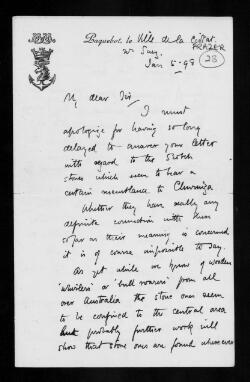 Paquebot. le Ville de la Ciotat.
FRAZER
23
nr Suez.
Jan 5 - 98
My dear Sir,
I must
apologize for having so long
delayed to answer your letter
with regard to the Scotch
stones which seem to bear a
certain resemblance to Churinga
Whether they have really any
definite connection with them
so far as their meaning is concerned
it is of course impossible to say.
As yet while we know of wooden
'whirlers' or 'bull roarers' from all
over Australia the stone ones seem
to be confined to the central area
but probably further work will
show that stone ones are found where ever